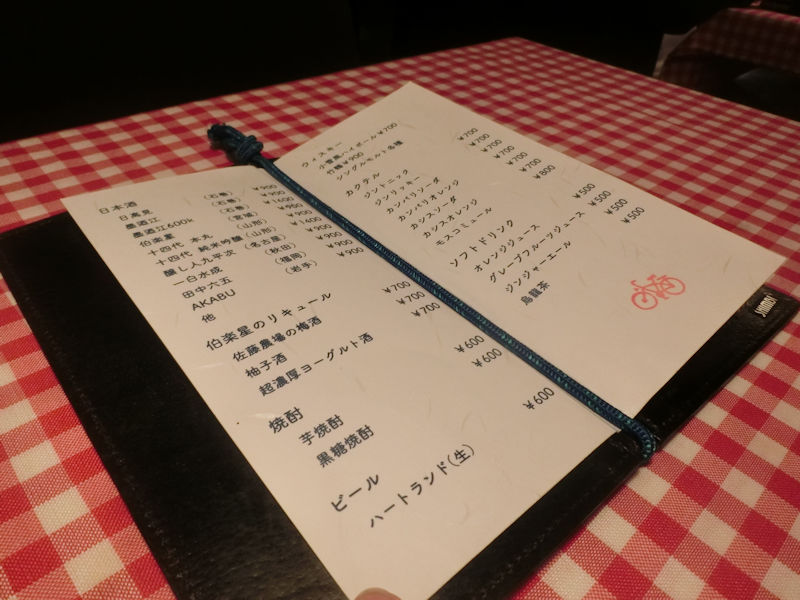 日本酒
日高見 (石巻) ¥900
墨廼江 (石巻) ¥900
墨廼江600K (石巻) ¥1600
伯楽星 (宮城) ¥900
十四代 本丸 (山形)
十四代 純米吟醸 (山形)
醸し人九平次 (名古屋) ¥900
一白水成 (秋田) ¥900
田中六五 (福岡) ¥900
AKABU (岩手) ¥900
他
伯楽星のリキュール
佐藤農場の梅酒 ¥700
柚子酒 ¥700
超濃厚ヨーグルト酒 ¥700
焼酎
芋焼酎 ¥600
黒糖焼酎 ¥600
ビール
ハートランド(生) ¥600
ウィスキー
ハイボール ¥700
竹鶴 ¥900
シングルモルト各種
カクテル
ジントニック ¥700
ジンリッキー ¥700
カンパリソーダ ¥700
カンパリオレンジ ¥700
カシスソーダ ¥700
カシスオレンジ ¥700
モスコミュール ¥800
ソフトドリンク
オレンジジュース ¥500
グレープフルーツジュース ¥500
ジンジャーエール ¥500
烏龍茶 ¥500